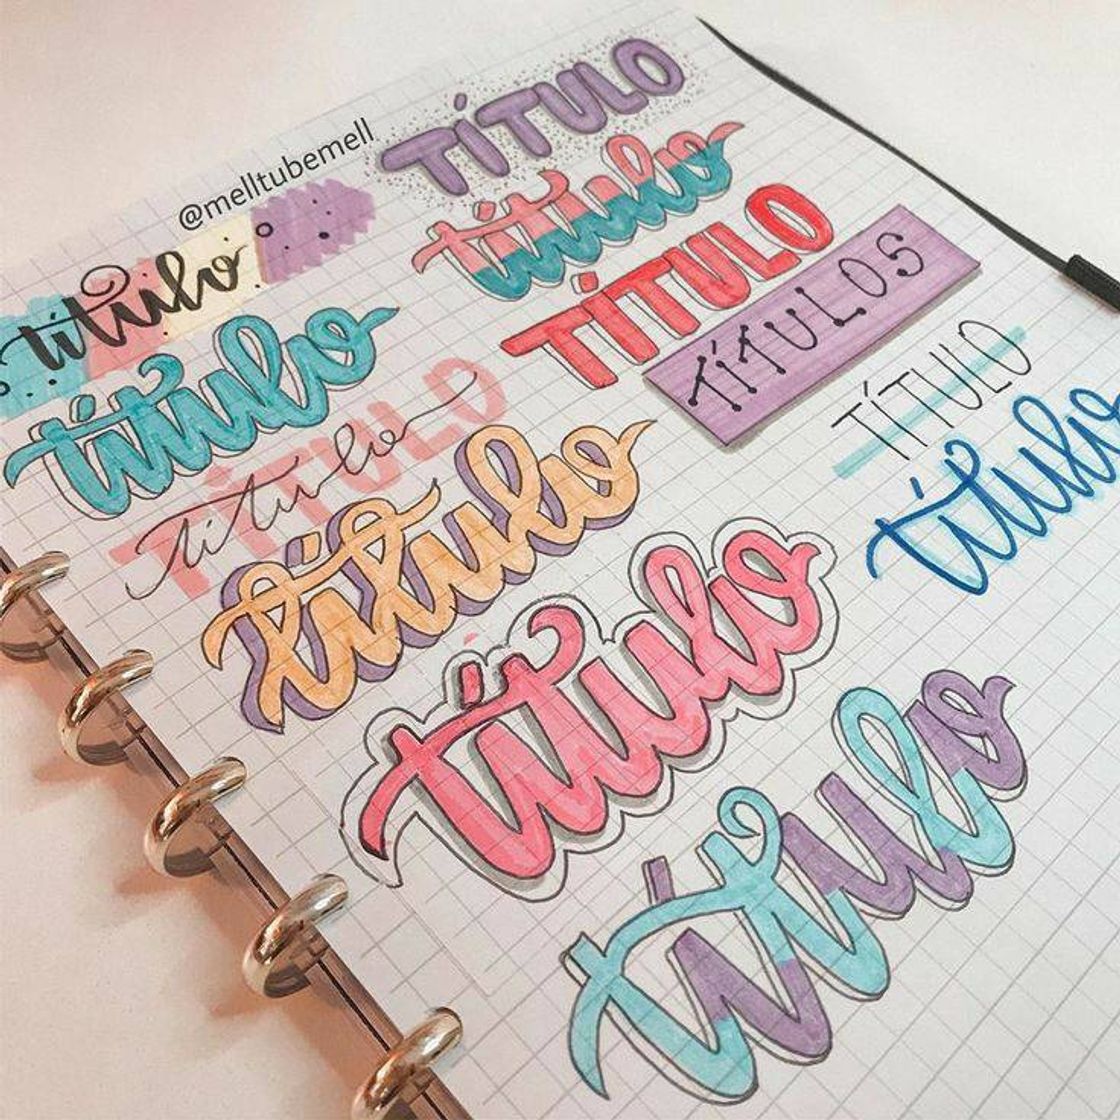 TÍTULO
@melltubemell
título
título
TÍTULO
título
título
TÍTULOS
TÍTULO
título
TÍTULO
título
título
título
título